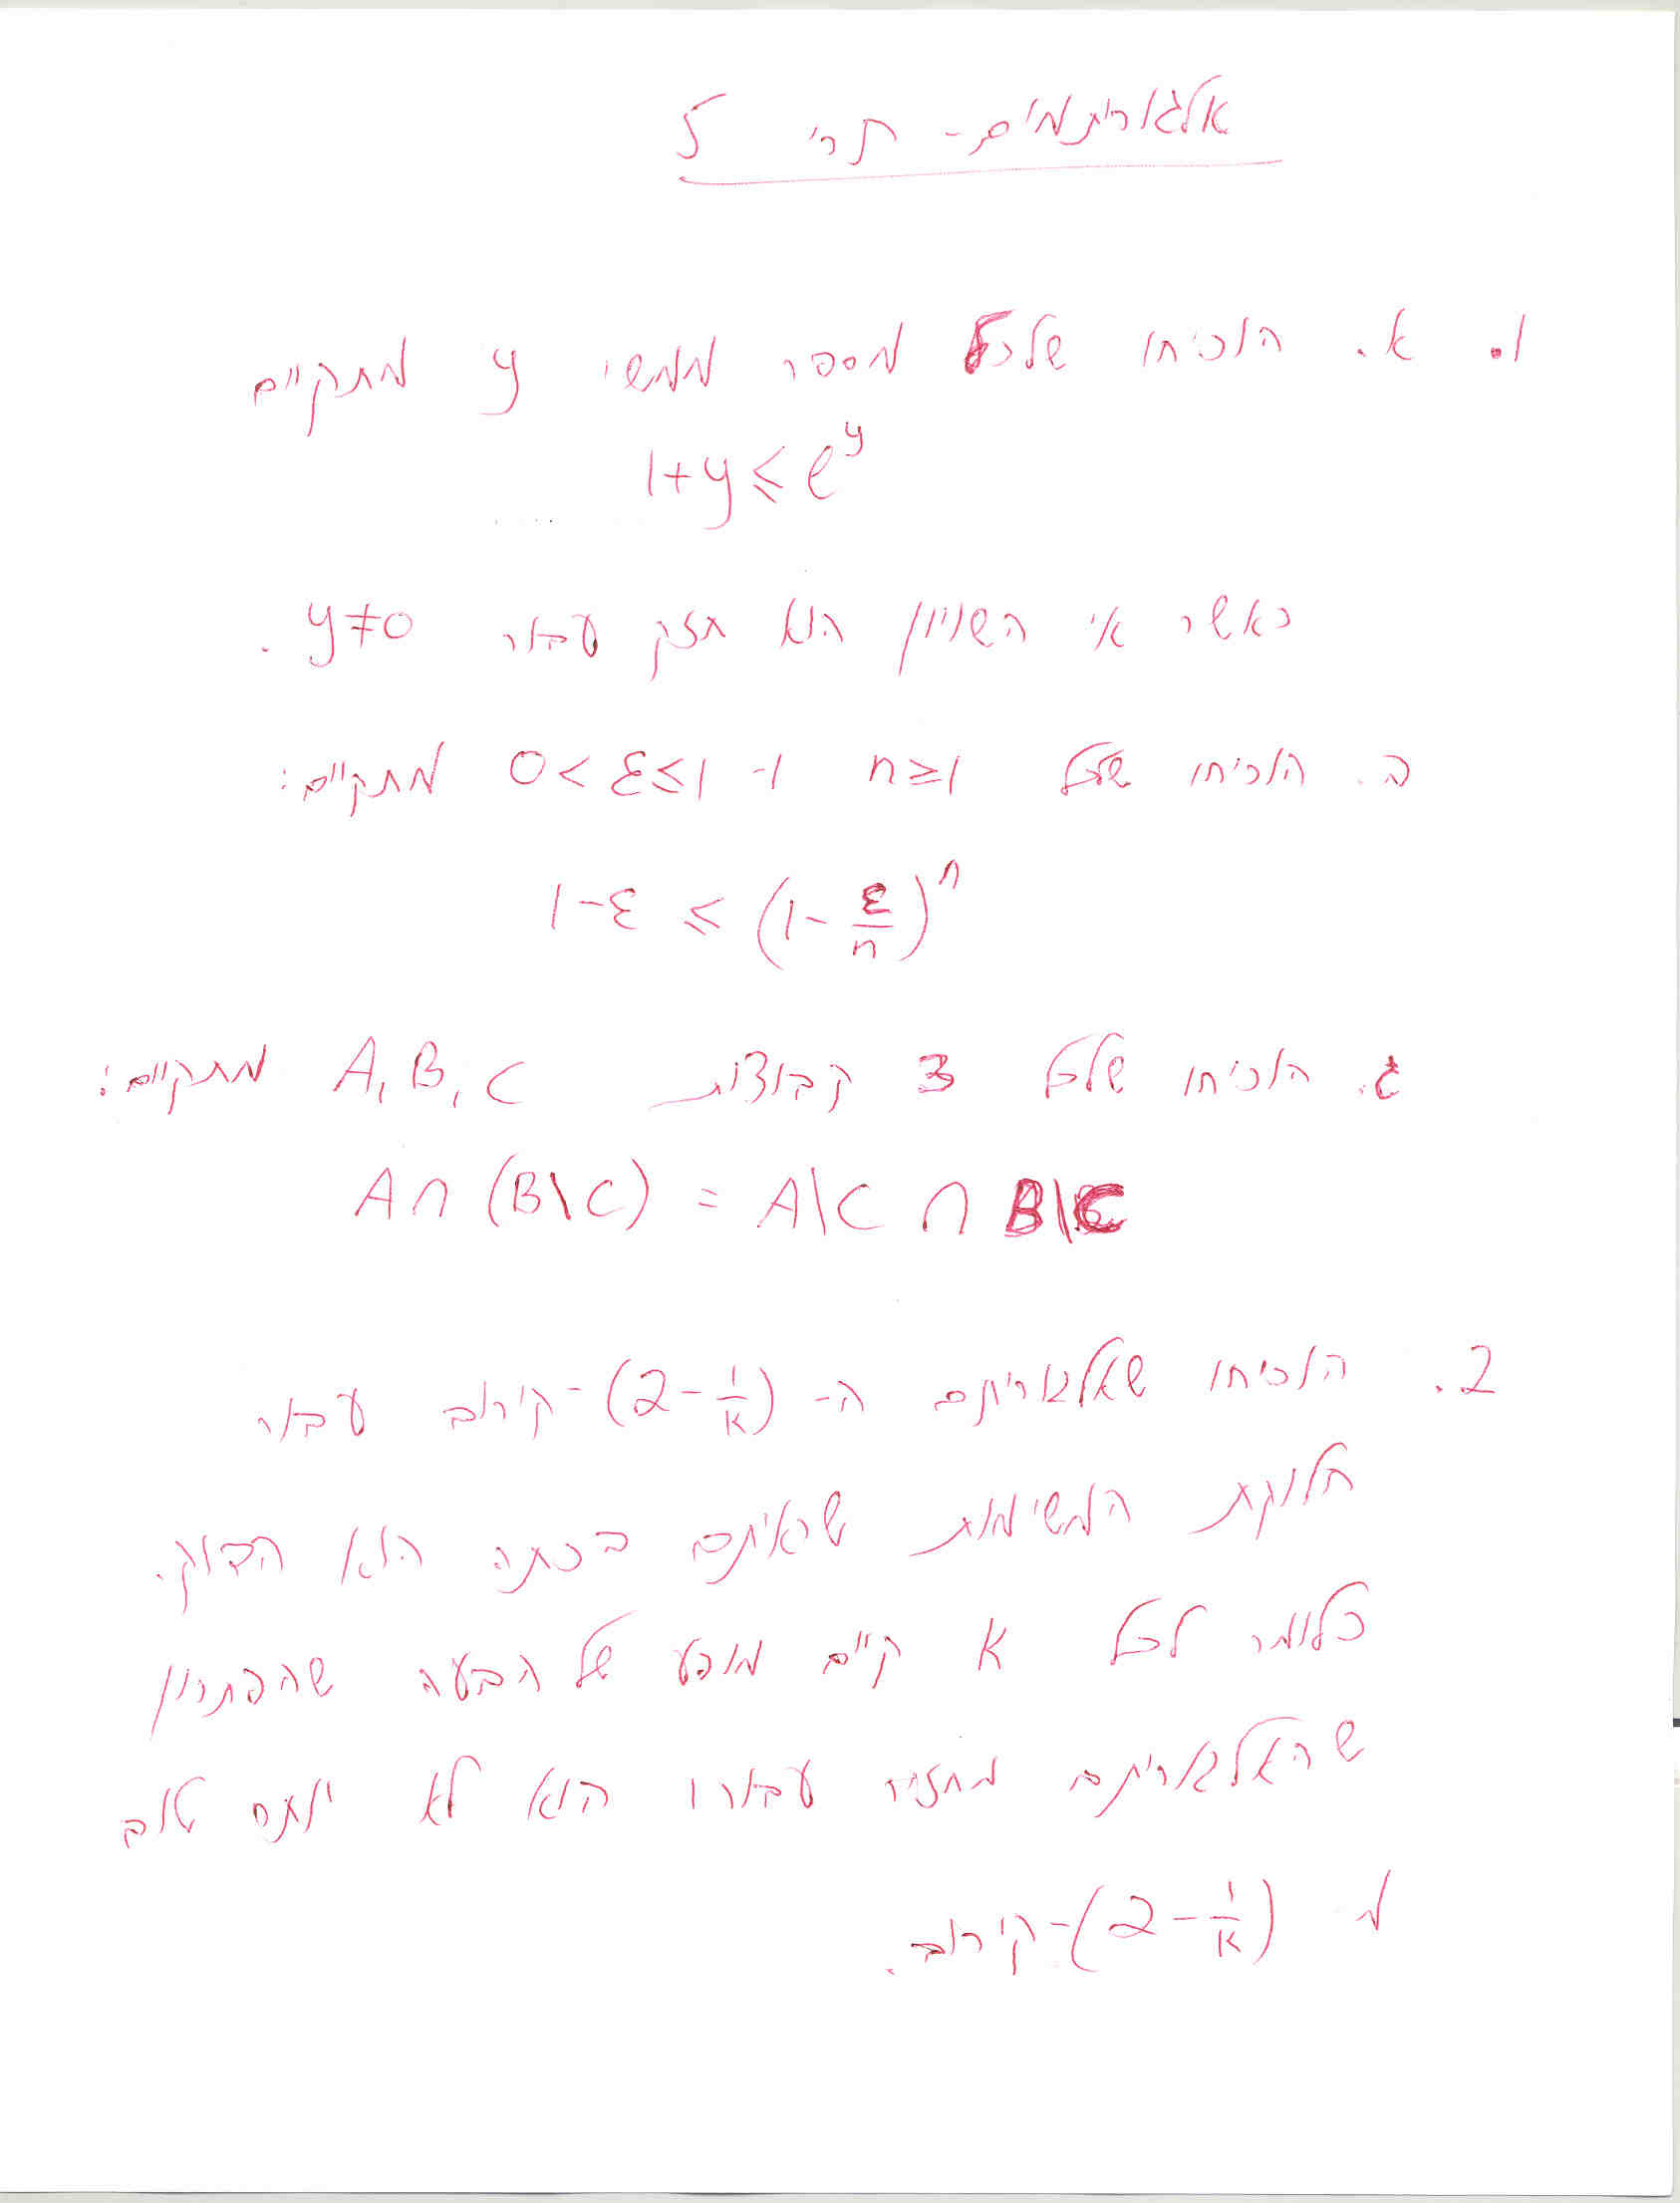 אלגוריתמים - תר' 5
1. א. הוכיחו שלכל מספר ממשי y מתקיים
1+y ≤ e^y
כאשר אי השוויון הוא חזק עבור y≠0.
ב. הוכיחו שלכל n≥1 ו- 0<ε≤1 מתקיים:
1-ε ≤ (1-ε/n)^n
ג. הוכיחו שלכל 3 קבוצות A, B, C מתקיים:
A∩(B\C) = A\C ∩ B\C
2. הוכיחו שאלגוריתם ה- (2-1/k)-קירוב עבור
חלוקת המשימות שראיתם בכתה הוא הדוק.
כלומר לכל k קיים מופע של הבעיה שהפתרון
שהאלגוריתם מחזיר עבורו הוא לא יותר טוב
מ (2-1/k)-קירוב.